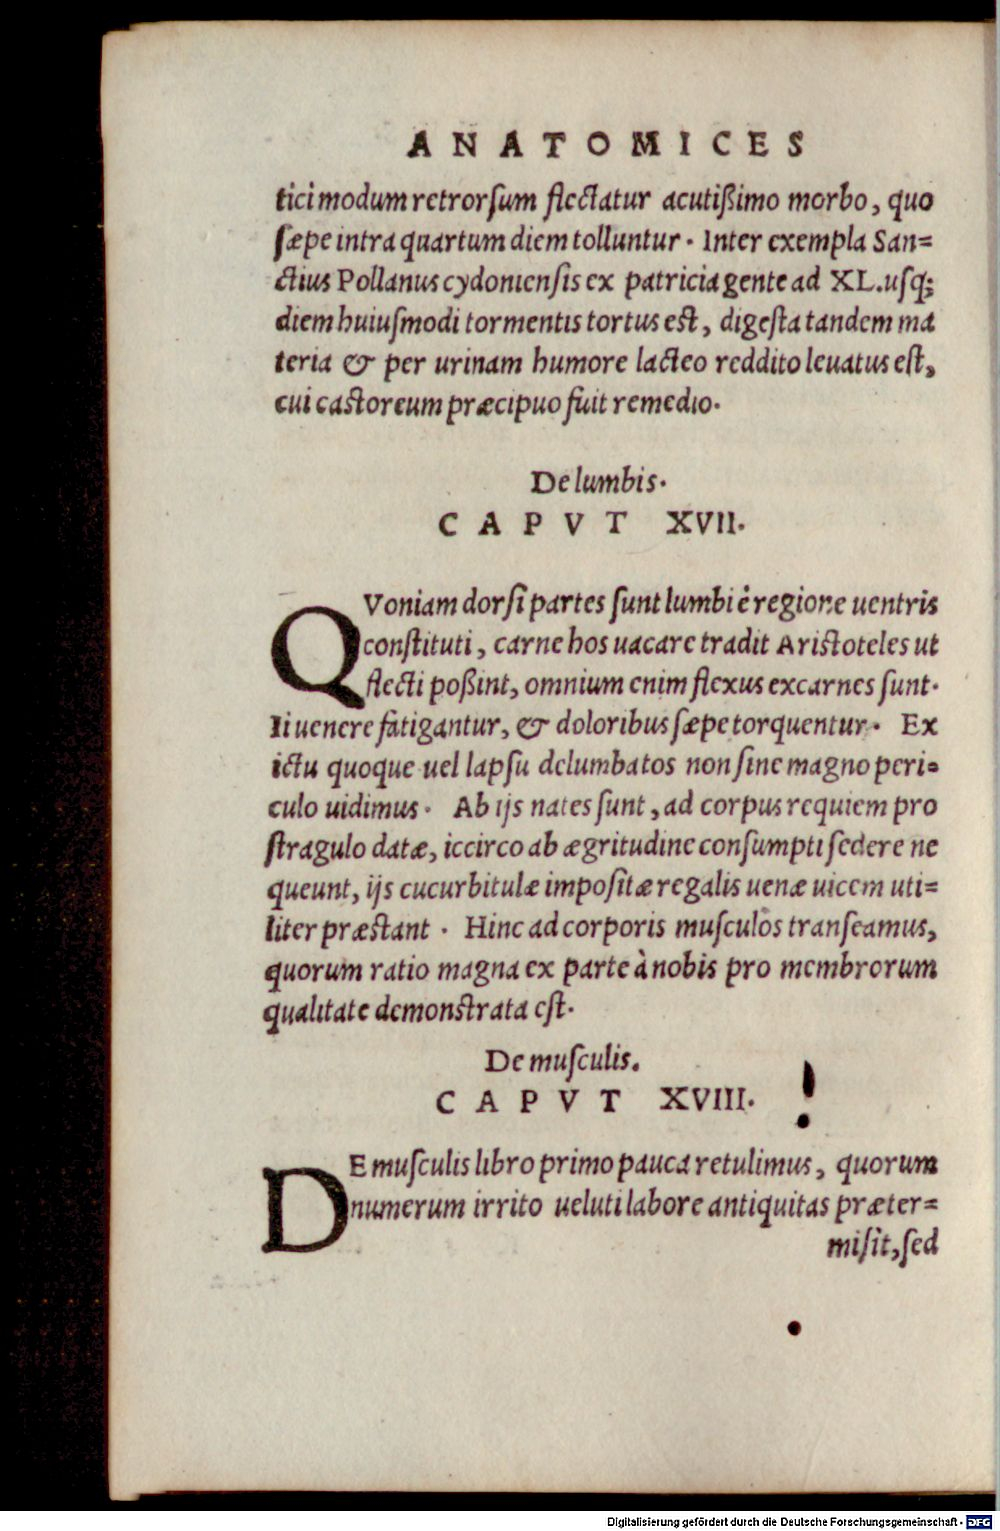 ANATOMICES
tici modum retrorsum flectatur acutißimo morbo, quo
sæpe intra quartum diem tolluntur. Inter exempla San=
ctius Pollanus cydoniensis ex patricia gente ad XL. usq;
diem huiusmodi tormentis tortus est, digesta tandem ma
teria & per urinam humore lacteo reddito leuatus est,
cui castoreum præcipuo fuit remedio.
De lumbis.
CAPVT XVII.
QVoniam dorsi partes sunt lumbi è regione uentris
constituti, carne hos uacare tradit Aristoteles ut
flecti poßint, omnium enim flexus excarnes sunt.
Ii uenere fatigantur, & doloribus sæpe torquentur. Ex
ictu quoque uel lapsu delumbatos non sine magno peri=
culo uidimus. Ab ijs nates sunt, ad corpus requiem pro
stragulo datæ, iccirco ab ægritudine consumpti sedere ne
queunt, ijs cucurbitulæ impositæ regalis uenæ uicem uti=
liter præstant. Hinc ad corporis musculos transeamus,
quorum ratio magna ex parte à nobis pro membrorum
qualitate demonstrata est.
De musculis.
CAPVT XVIII.
DE musculis libro primo pauca retulimus, quorum
numerum irrito ueluti labore antiquitas præter=
misit, sed
Digitalisierung gefördert durch die Deutsche Forschungsgemeinschaft - DFG